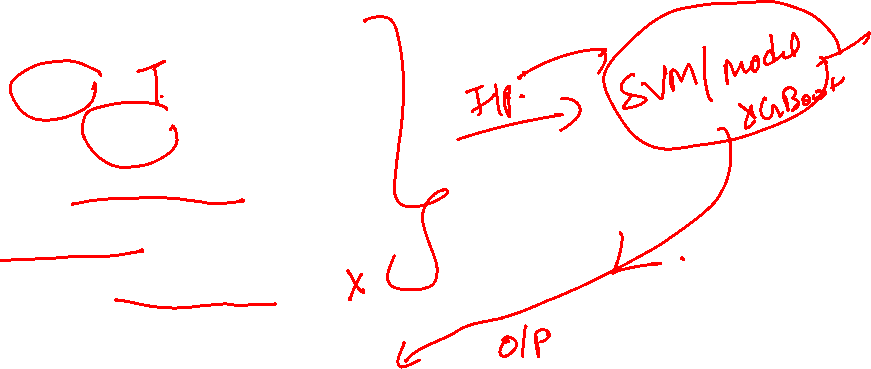 I.
I/p.
SVM/ model
XGBoost
X
O/P